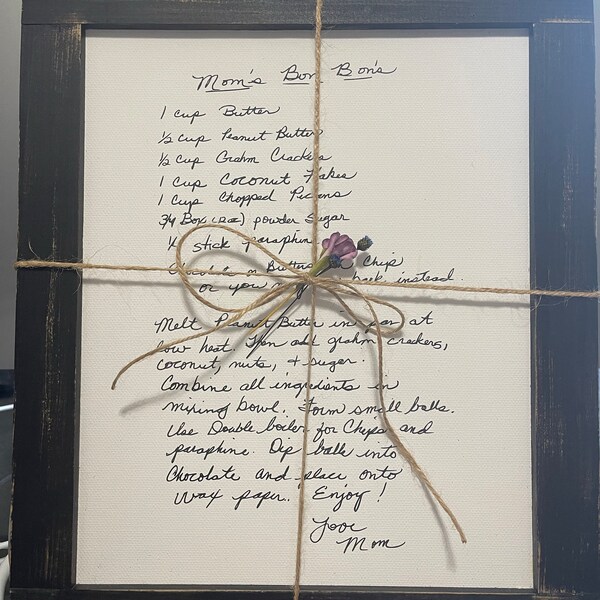 Mom's Bon Bon's
1 cup Butter
½ cup Peanut Butter
½ cup Grahm Crackers
1 Cup Coconut Flakes
1 Cup Chopped Picans
3/4 Box powder Sugar
stick paraphin
Chips
or you bark instead.
Melt Peanut Butter in pan at
low heat. Then add grahm crackers,
coconut, nuts, + sugar.
Combine all ingredients in
mixing bowl. Form small balls.
Use Double boiler for Chips and
paraphine. Dip balls into
Chocolate and place onto
wax paper. Enjoy!
Love
Mom